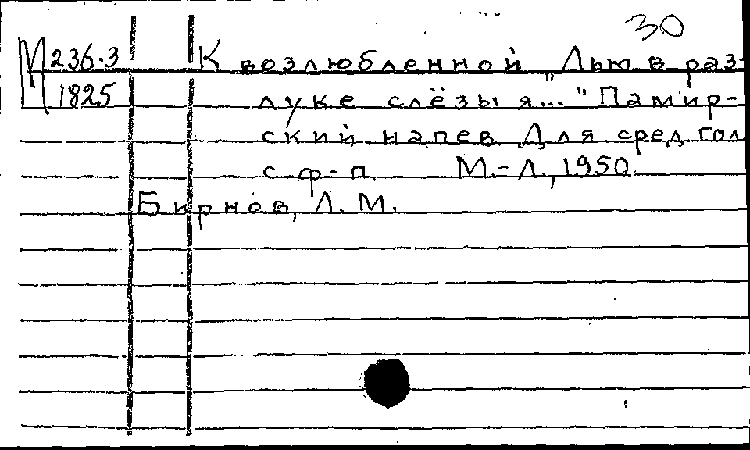 30
М 236.3 К возлюбленной „Лью в раз-
1825 луке слёзы я..." Памир-
ский напев Для сред гол
с ф-п. М.-Л., 1950.
Бирнов, Л. М.